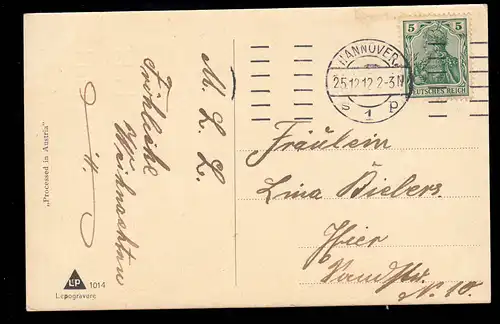 M. L. L.
Fröhliche
Weihnachten
"Processed in Austria"
LP
1014
Lepogravure
HANNOVER
25.12.12.2-3N
S 1 p
5 5
DEUTSCHES REICH
Fräulein
Lina Bielers
Hier
N. 10.